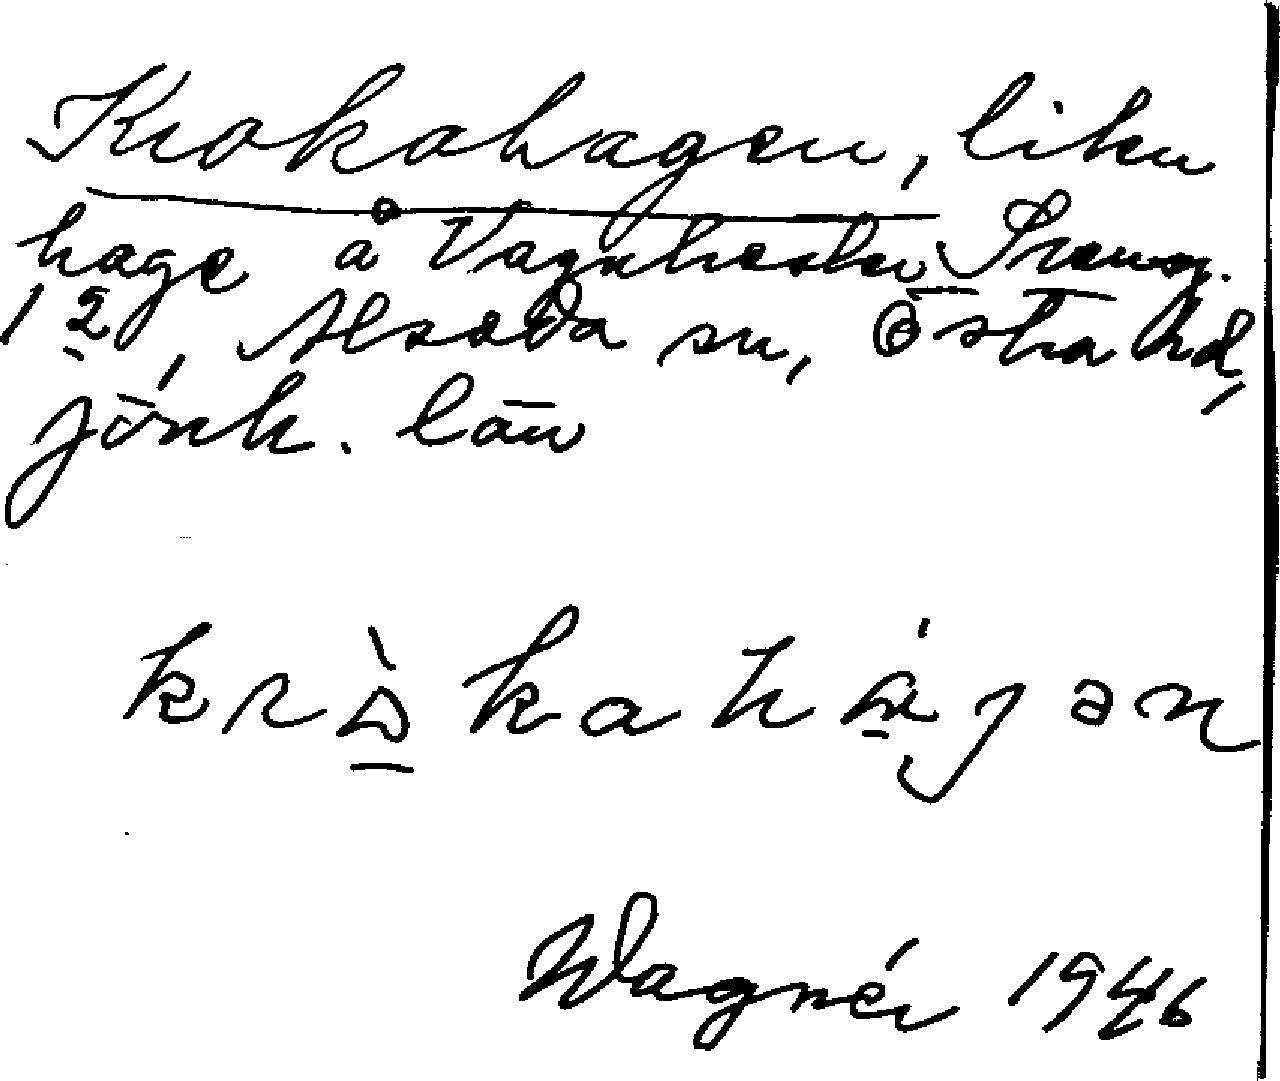 Krokahagen, liten
hage å Vagnhester Frewg.
1 2, Alseda sn, Östra hd,
jönk. län
kròkahágən
Wagnér 1946